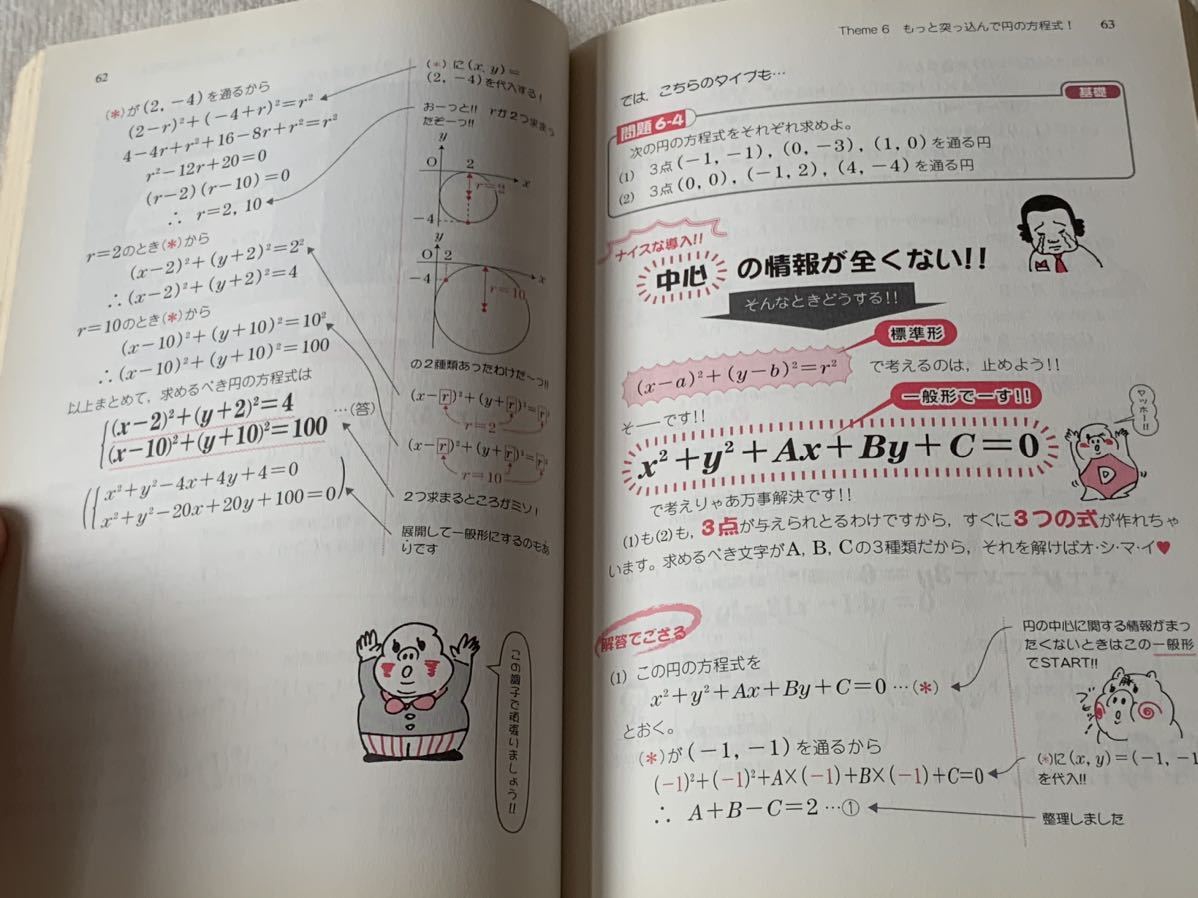 62
(*)が(2, −4)を通るから
(2−r)²+(−4+r)²=r²
4−4r+r²+16−8r+r²=r²
r²−12r+20=0
(r−2)(r−10)=0
∴ r=2, 10
r=2のとき(*)から
(x−2)²+(y+2)²=2²
∴(x−2)²+(y+2)²=4
r=10のとき(*)から
(x−10)²+(y+10)²=10²
∴(x−10)²+(y+10)²=100
以上まとめて、求めるべき円の方程式は
(x−2)²+(y+2)²=4
(x−10)²+(y+10)²=100 …(答)
x²+y²−4x+4y+4=0
x²+y²−20x+20y+100=0
(*)に(x, y)=
(2, −4)を代入する！
おーっと!! rが2つ求まっ
たぞーっ!!
y
O 2
x
r=2
−4
y
O 2
x
−4
r=10
の2種類あったわけだ〜っ!!
(x−r)²+(y+r)²=r²
r=2
(x−r)²+(y+r)²=r²
r=10
2つ求まるところがミソ！
展開して一般形にするのもあ
りです
この調子で頑張りましょう!!
Theme 6 もっと突っ込んで円の方程式！
63
では、こちらのタイプも…
問題6-4
基礎
次の円の方程式をそれぞれ求めよ。
(1) 3点(−1, −1), (0, −3), (1, 0)を通る円
(2) 3点(0, 0), (−1, 2), (4, −4)を通る円
ナイスな導入!!
中心の情報が全くない!!
そんなときどうする!!
標準形
(x−a)²+(y−b)²=r² で考えるのは、止めよう!!
そ──です!!
一般形でーす!!
x²+y²+Ax+By+C=0
ヤッホー!!
で考えりゃあ万事解決です!!
(1)も(2)も、3点が与えられとるわけですから、すぐに3つの式が作れちゃ
います。求めるべき文字がA, B, Cの3種類だから、それを解けばオ・シ・マ・イ♥
解答でござる
(1) この円の方程式を
x²+y²+Ax+By+C=0 …(*)
とおく。
(*)が(−1, −1)を通るから
(−1)²+(−1)²+A×(−1)+B×(−1)+C=0
∴ A+B−C=2 …①
円の中心に関する情報がまっ
たくないときはこの一般形
でSTART!!
(*)に(x, y)=(−1, −1
を代入!!
整理しました